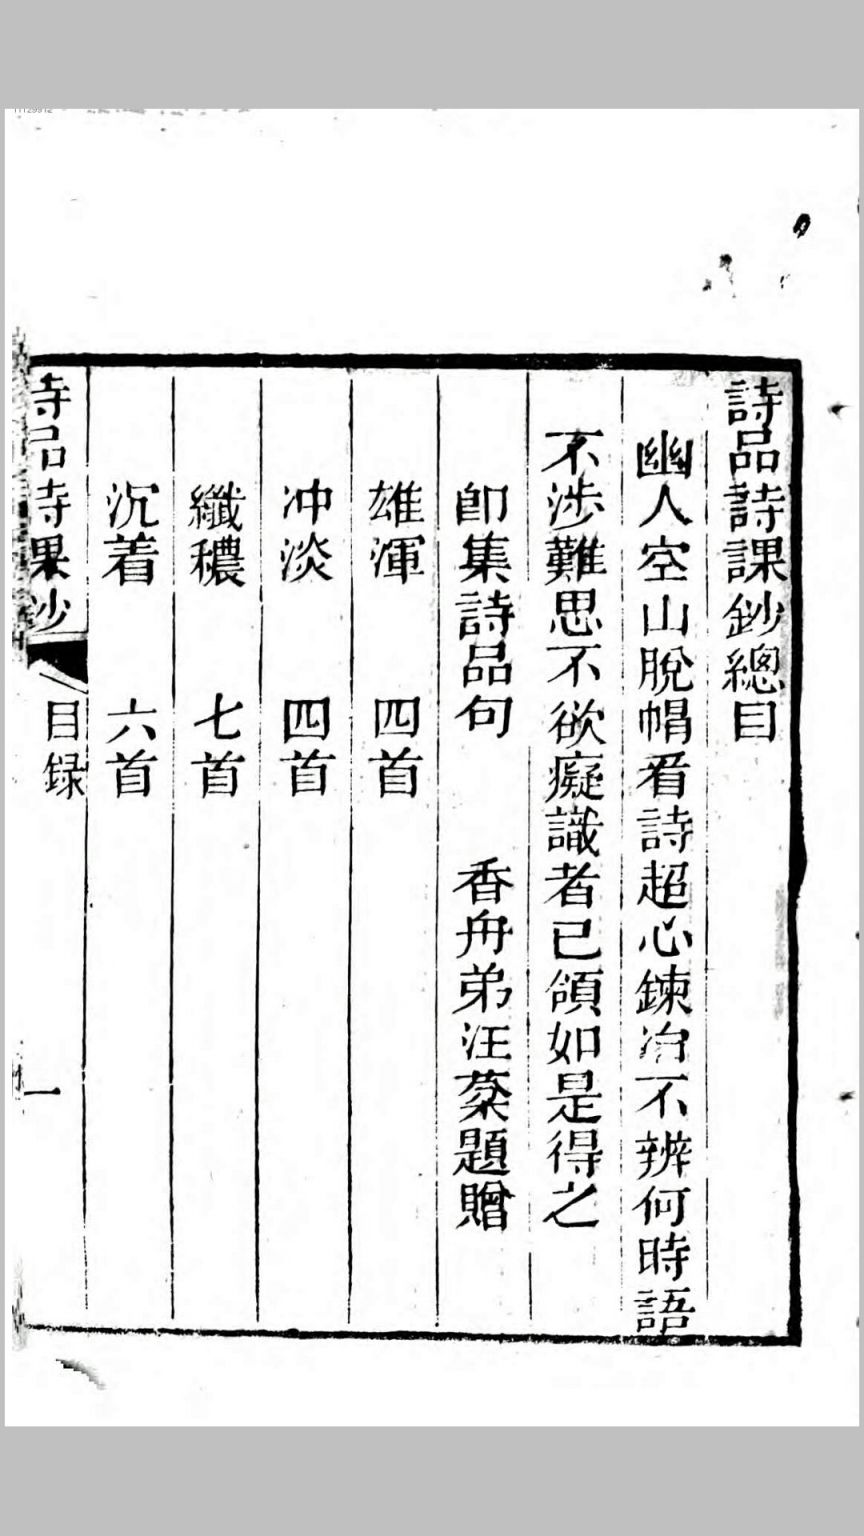 詩品詩課鈔總目
幽人空山脫帽看詩超心鍊冶不辨何時語
不涉難思不欲癡識者已領如是得之
卽集詩品句　香舟弟汪棻題贈
雄渾　四首
冲淡　四首
纖穠　七首
沉着　六首
詩品詩課鈔　目録　一